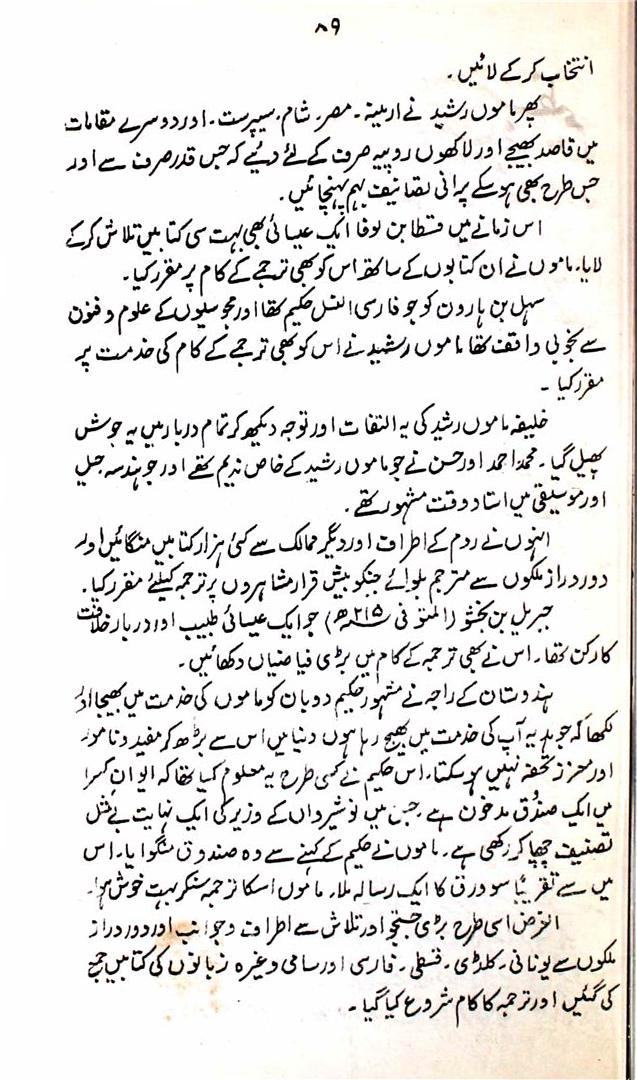 ۸۹
انتخاب کر کے لائیں۔
پھر ماموں رشید نے ارمینہ۔ مصر۔ شام، سیپرست۔ اور دوسرے مقامات
میں قاصد بھیجے اور لاکھوں روپیہ صرف کے لئے دئیے کہ جس قدر صرف سے اور
جس طرح بھی ہو سکے پرانی تصانیف بہم پہنچائیں۔
اس زمانے میں قسطا بن لوقا ایک عیسائی بھی بہت سی کتابیں تلاش کر کے
لایا۔ ماموں نے ان کتابوں کے ساتھ اس کو بھی ترجمے کے کام پر مقرر کیا۔
سہل بن ہارون کو جو فارسی النسل حکیم تھا اور مجوسیوں کے علوم و فنون
سے بخوبی واقف تھا ماموں رشید نے اس کو بھی ترجمے کے کام کی خدمت پر
مقرر کیا۔
خلیفہ ماموں رشید کی یہ التفات اور توجہ دیکھ کر تمام دربار میں یہ جوش
پھیل گیا۔ محمد احمد اور حسن نے جو ماموں رشید کے خاص ندیم تھے اور جو ہندسہ حیل
اور موسیقی میں استاد وقت مشہور تھے۔
انہوں نے روم کے اطراف اور دیگر ممالک سے کئی ہزار کتابیں منگائیں اور
دور دراز ملکوں سے مترجم بلوائے جنکو بیش قرار مشاہروں پر ترجمہ کیلئے مقرر کیا۔
جبریل بن بخشو (المتوفی ۲۱۵ھ) جو ایک عیسائی طبیب اور دربار خلافت
کا رکن تھا۔ اس نے بھی ترجمہ کے کام میں بڑی فیاضیاں دکھائیں۔
ہندوستان کے راجہ نے مشہور حکیم دوبان کو ماموں کی خدمت میں بھیجا اور
لکھا کہ جو ہدیہ آپ کی خدمت میں بھیج رہا ہوں دنیا میں اس سے بڑھ کر مفید و نامور
اور معزز تحفہ نہیں ہو سکتا۔ اس حکیم نے کسی طرح یہ معلوم کیا تھا کہ ایوان کسرا
میں ایک صندوق مدفون ہے۔ جس میں نوشیرواں کے وزیر کی ایک نہایت بے مثل
تصنیف چھپا کر رکھی ہے۔ ماموں نے حکیم کے کہنے سے وہ صندوق منگوایا۔ اس
میں سے تقریباً سو ورق کا ایک رسالہ ملا۔ ماموں اسکا ترجمہ سنکر بہت خوش ہوا۔
الغرض اسی طرح بڑی جستجو اور تلاش سے اطراف و جوانب اور دور دراز
ملکوں سے یونانی۔ کلڈی۔ قسطی۔ فارسی اور سامی وغیرہ زبانوں کی کتابیں جمع
کی گئیں اور ترجمہ کا کام شروع کیا گیا۔